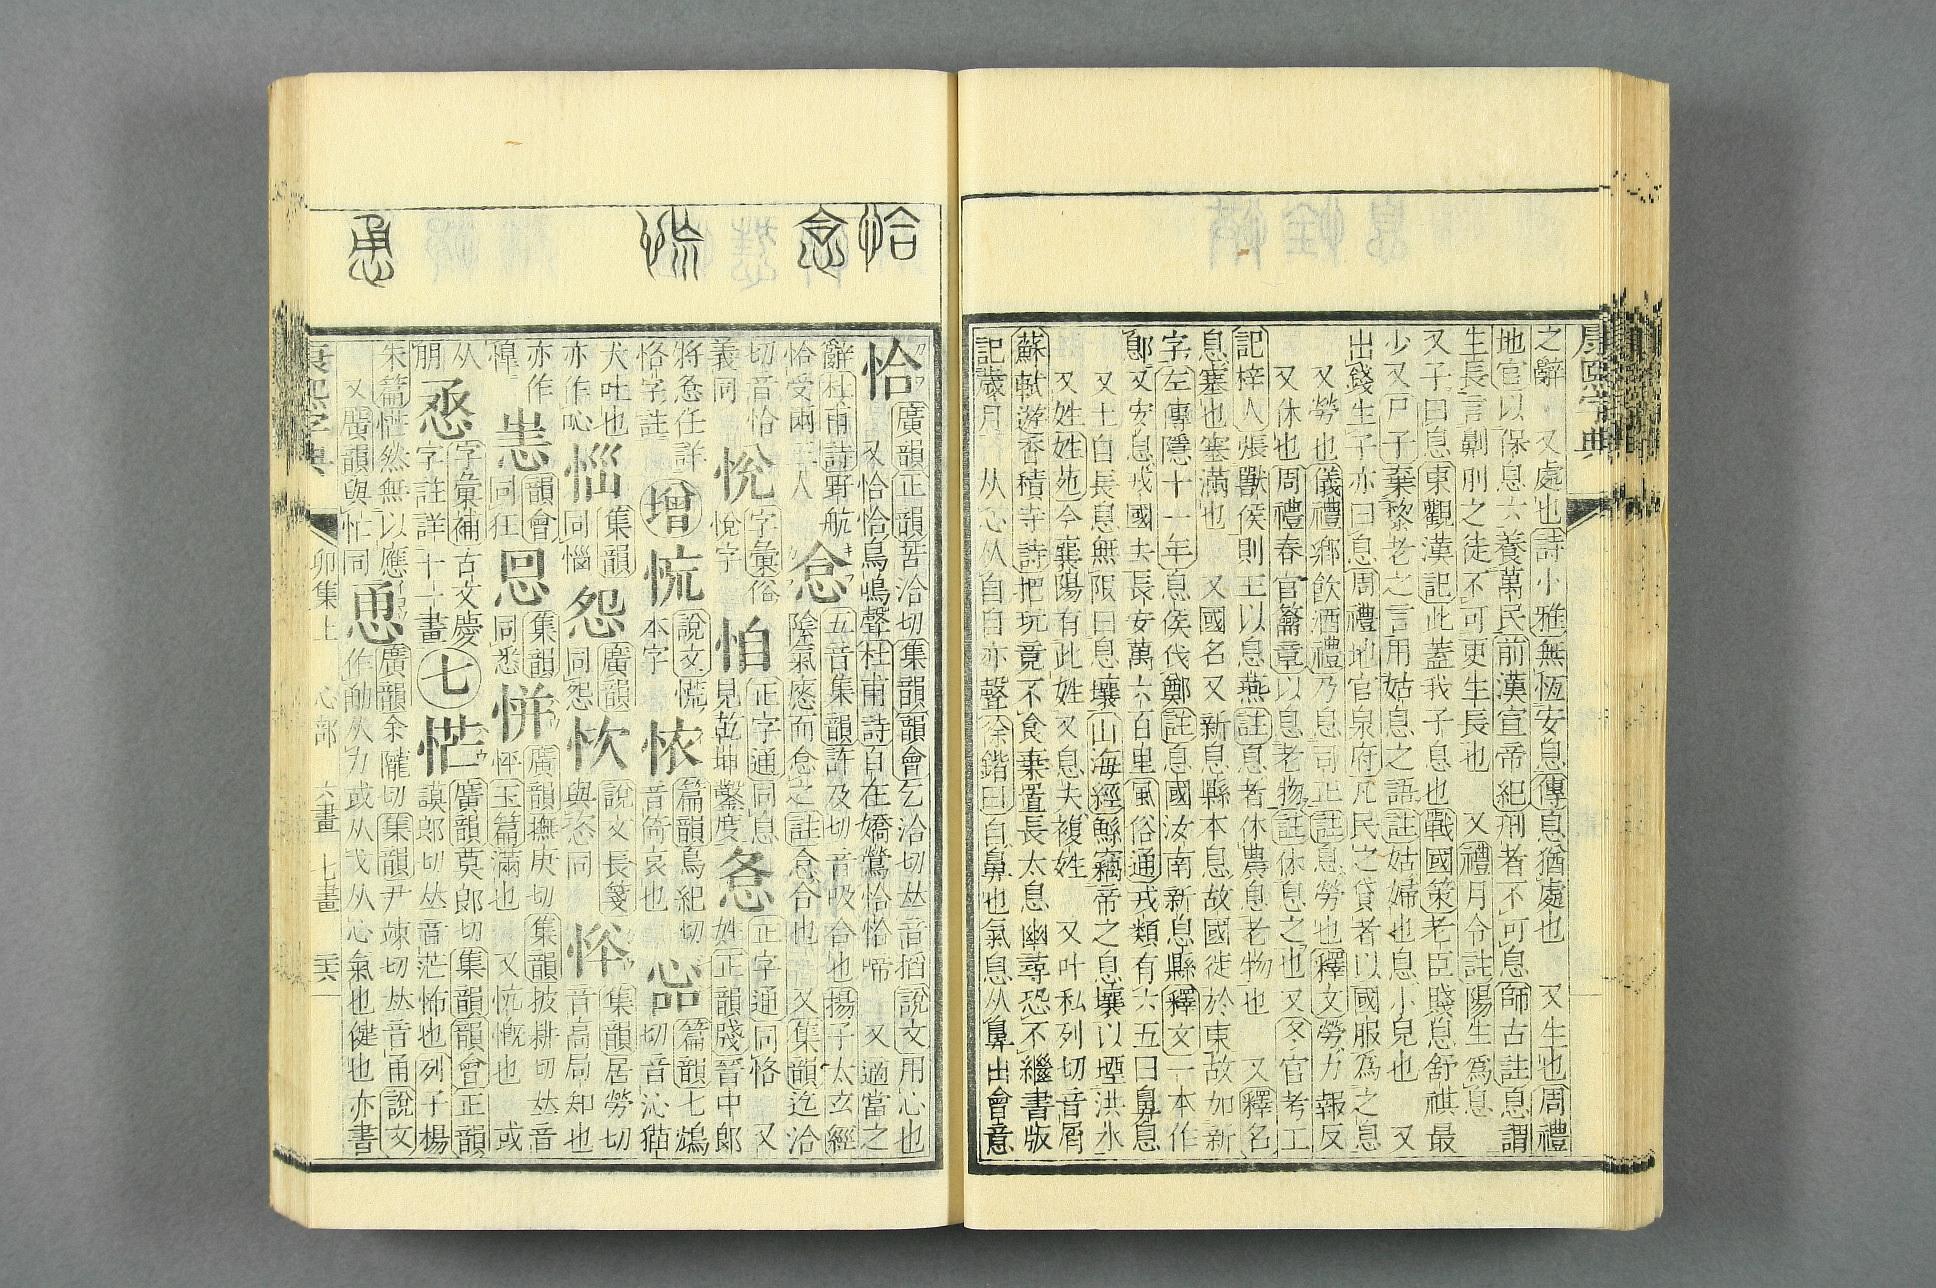 康熙字典
之辭 又處也詩小雅無恆安息傳息猶處也 又生也周禮
地官以保息六養萬民前漢宣帝紀刑者不可息師古註息謂
生長言劓刖之徒不可更生長也 又禮月令註陽生爲息
又子曰息東觀漢記此蓋我子息也戰國策老臣賤息舒祺最
少又尸子棄黎老之言用姑息之語註姑婦也息小兒也 又
出錢生子亦曰息周禮地官泉府凡民之貸者以國服爲之息
又勞也儀禮鄉飲酒禮乃息司正註息勞也釋文勞力報反
又休也周禮春官籥章以息老物註休息之也又冬官考工
記梓人張獸侯則王以息燕註息者休農息老物也 又釋名
息塞也塞滿也 又國名又新息縣本息故國徙於東故加新
字左傳隱十一年息侯伐鄭註息國汝南新息縣釋文一本作
鄎又安息戎國去長安萬六百里風俗通戎類有六五曰鼻息
又土自長息無限曰息壤山海經鯀竊帝之息壤以堙洪水
又姓姓苑今襄陽有此姓又息夫複姓 又叶私列切音屑
蘇軾遊香積寺詩把玩竟不食棄置長太息幽尋恐不繼書版
記歲月 从心从自自亦聲徐鍇曰自鼻也氣息从鼻出會意
恰 念 㤺 恿
恰 廣韻正韻苦洽切集韻韻會乞洽切𠀤音掐說文用心也
又恰恰鳥鳴聲杜甫詩自在嬌鶯恰恰啼 又適當之
辭杜甫詩野航
恰受兩三人 㤱 五音集韻許及切音吸合也揚子太玄經
陰氣瘱而㤱之註㤱合也 又集韻迄洽
切音恰
義同 悅 字彙俗
悅字 怕 正字通同息
見乾坤鑿度 正字通同恪 又
姓正韻牋晉中郎
將 任詳
恪字註 增 㤺 說文㥬
本字 㤅 篇韻烏紀切
音倚哀也 篇韻七鴆
切音沁猫
犬吐也
亦作吣 㛴 集韻
同惱 怨 廣韻
同怨 㤡 說文長箋
與恣同 㤩 集韻居勞切
音高局知也
亦作
惶 恇 韻會
同狂 恖 集韻
同悉 恲 廣韻撫庚切集韻披耕切𠀤音
怦玉篇滿也 又忼慨也 或
从
朋 㤙 字彙補古文慶
字註詳十一畫 七 恾 廣韻莫郎切集韻韻會正韻
謨郎切𠀤音茫怖也列子楊
朱篇恾然無以應
又廣韻與忙同 恿 廣韻余隴切集韻尹竦切𠀤音甬說文
作勈从力或从戈从心氣也健也亦書
康熙字典 卯集上 心部 六畫 七畫